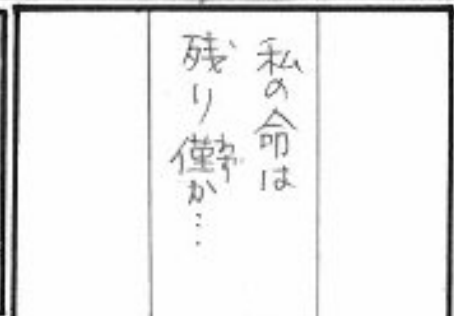 私の命は
残り僅か…
わず